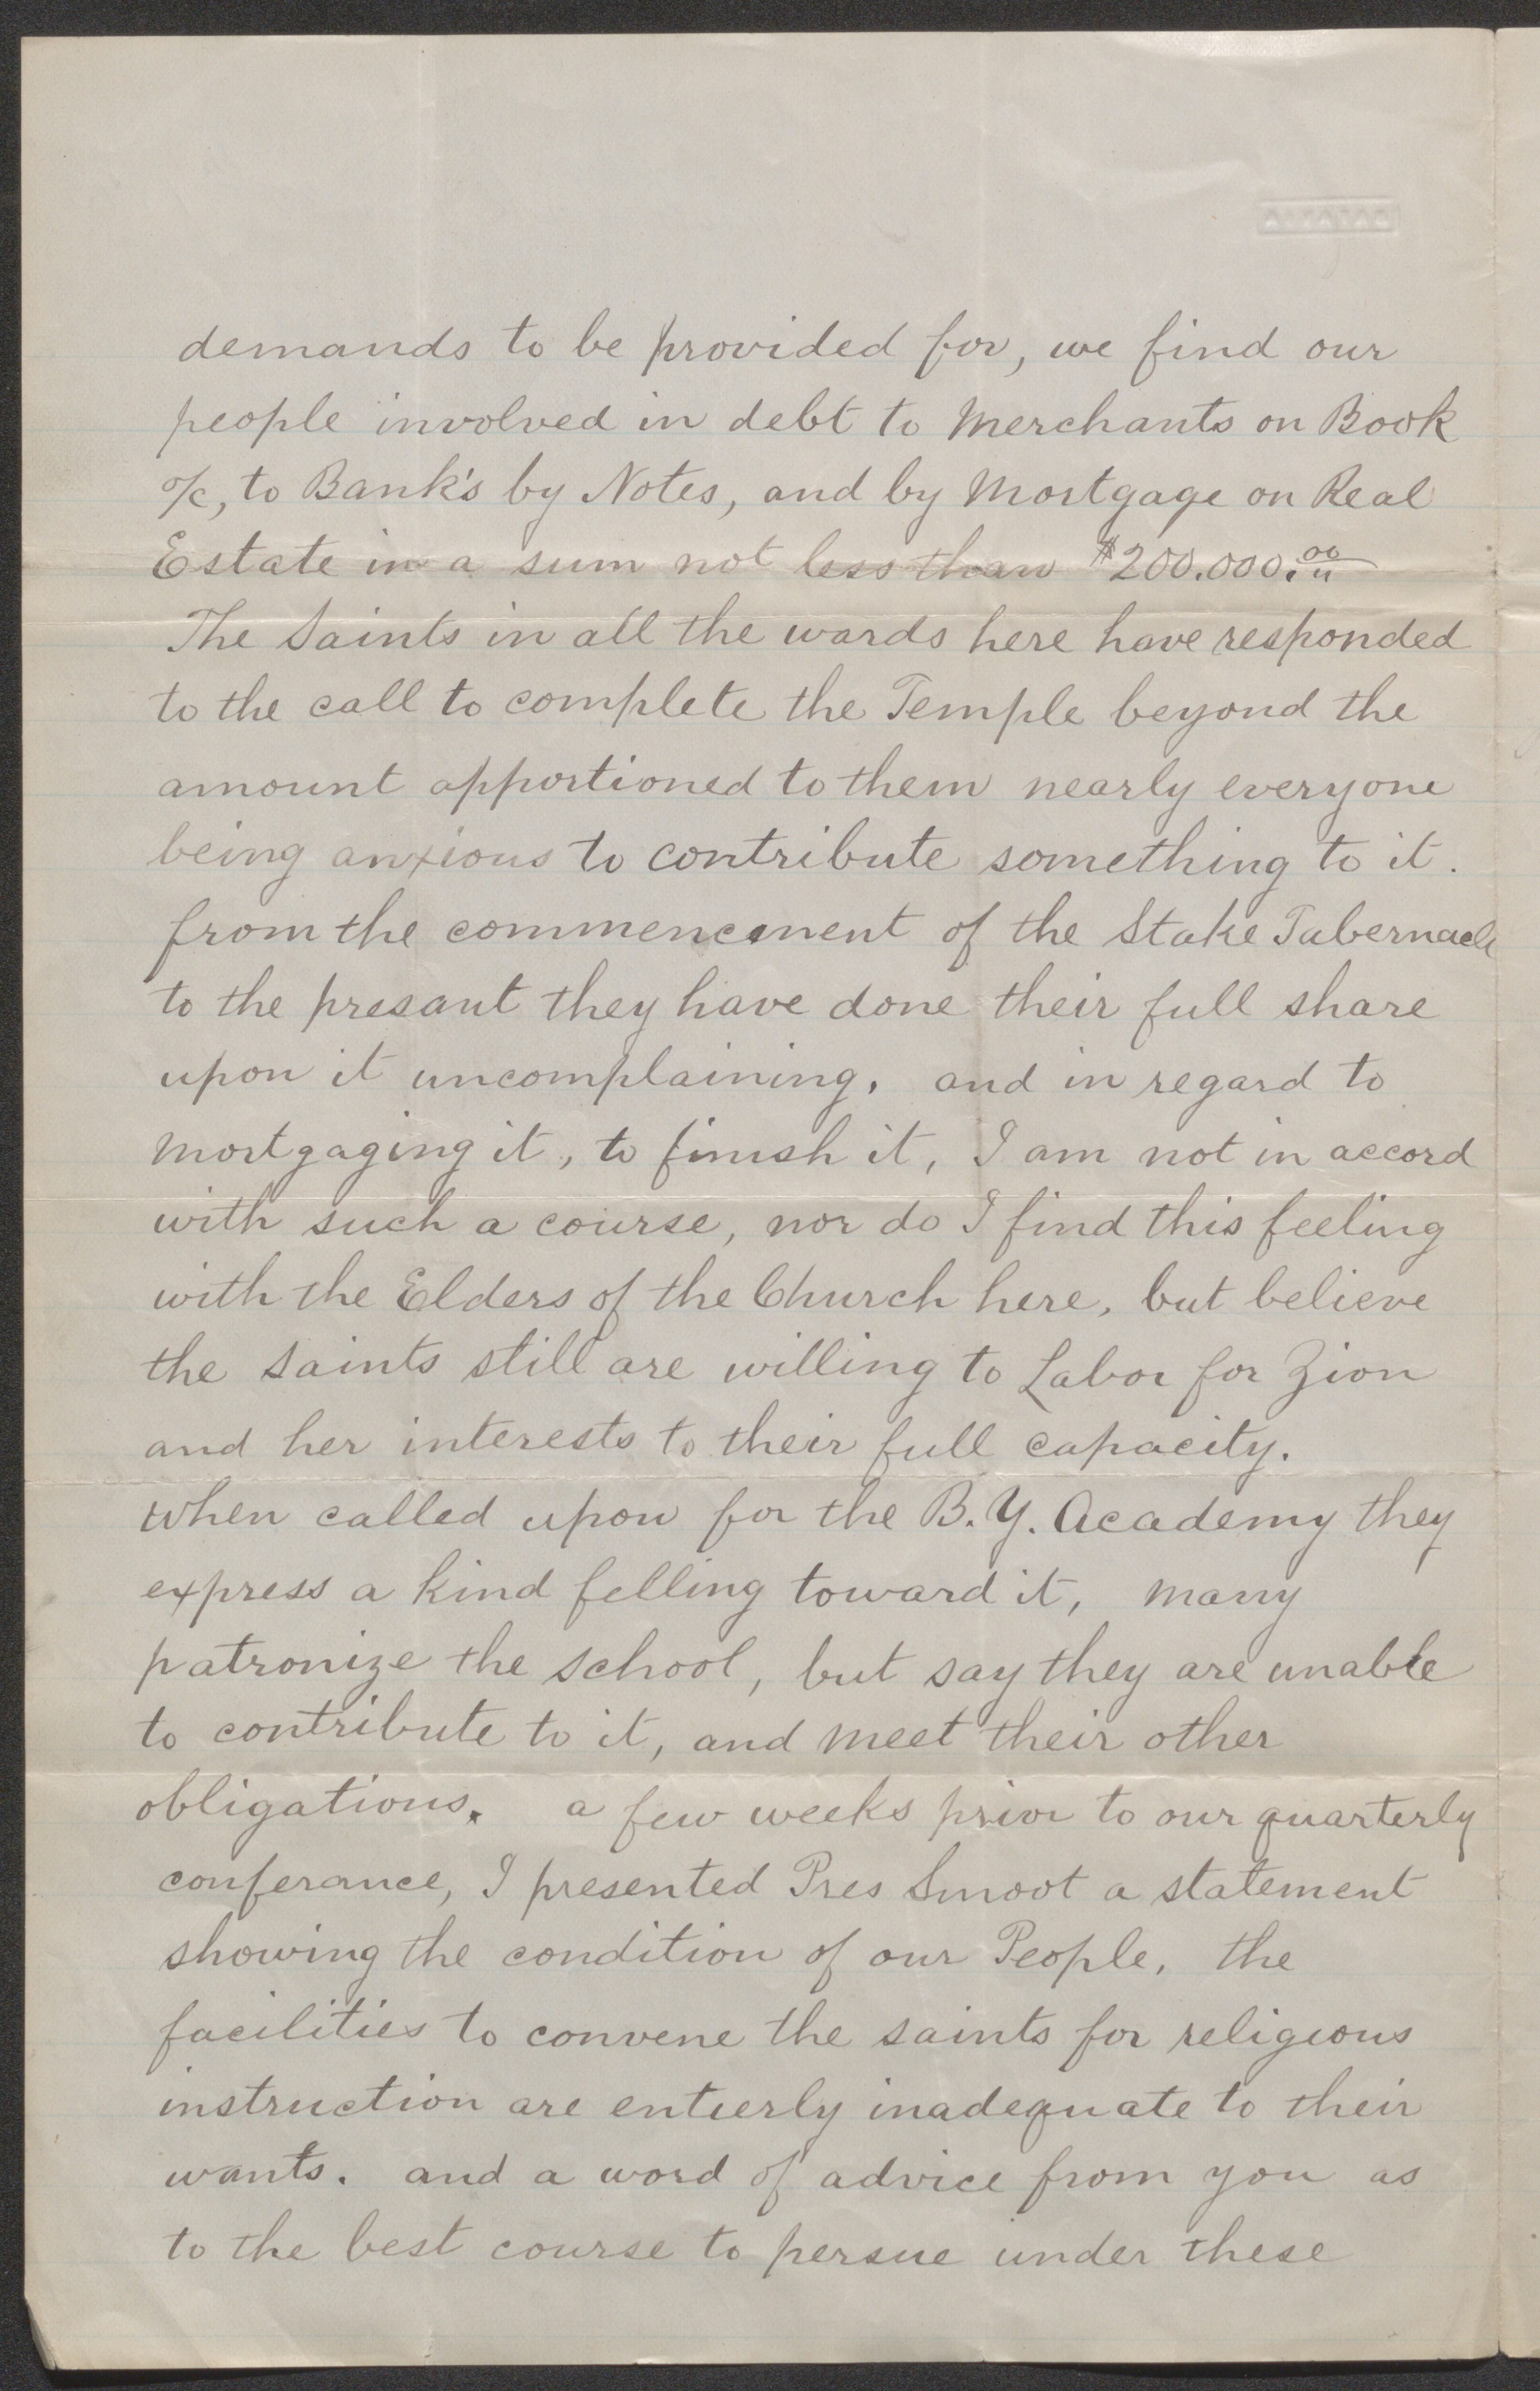 demands to be provided for, we find our
people involved in debt to Merchants on Book
o/c, to Bank's by Notes, and by Mortgage on Real
Estate in a sum not less than $200.000.00
The Saints in all the wards here have responded
to the call to complete the Temple beyond the
amount apportioned to them nearly everyone
being anxious to contribute something to it.
from the commencement of the Stake Tabernacle
to the presant they have done their full share
upon it uncomplaining. and in regard to
Mortgaging it, to finish it, I am not in accord
with such a course, nor do I find this feeling
with the Elders of the Church here, but believe
the Saints still are willing to Labor for Zion
and her interests to their full capacity.
When called upon for the B. Y. Academy they
express a kind felling toward it, many
patronize the school, but say they are unable
to contribute to it, and meet their other
obligations. a few weeks prior to our quarterly
conferance, I presented Pres Smoot a statement
showing the condition of our People, the
facilities to convene the saints for religious
instruction are entierly inadequate to their
wants. and a word of advice from you as
to the best course to persue under these